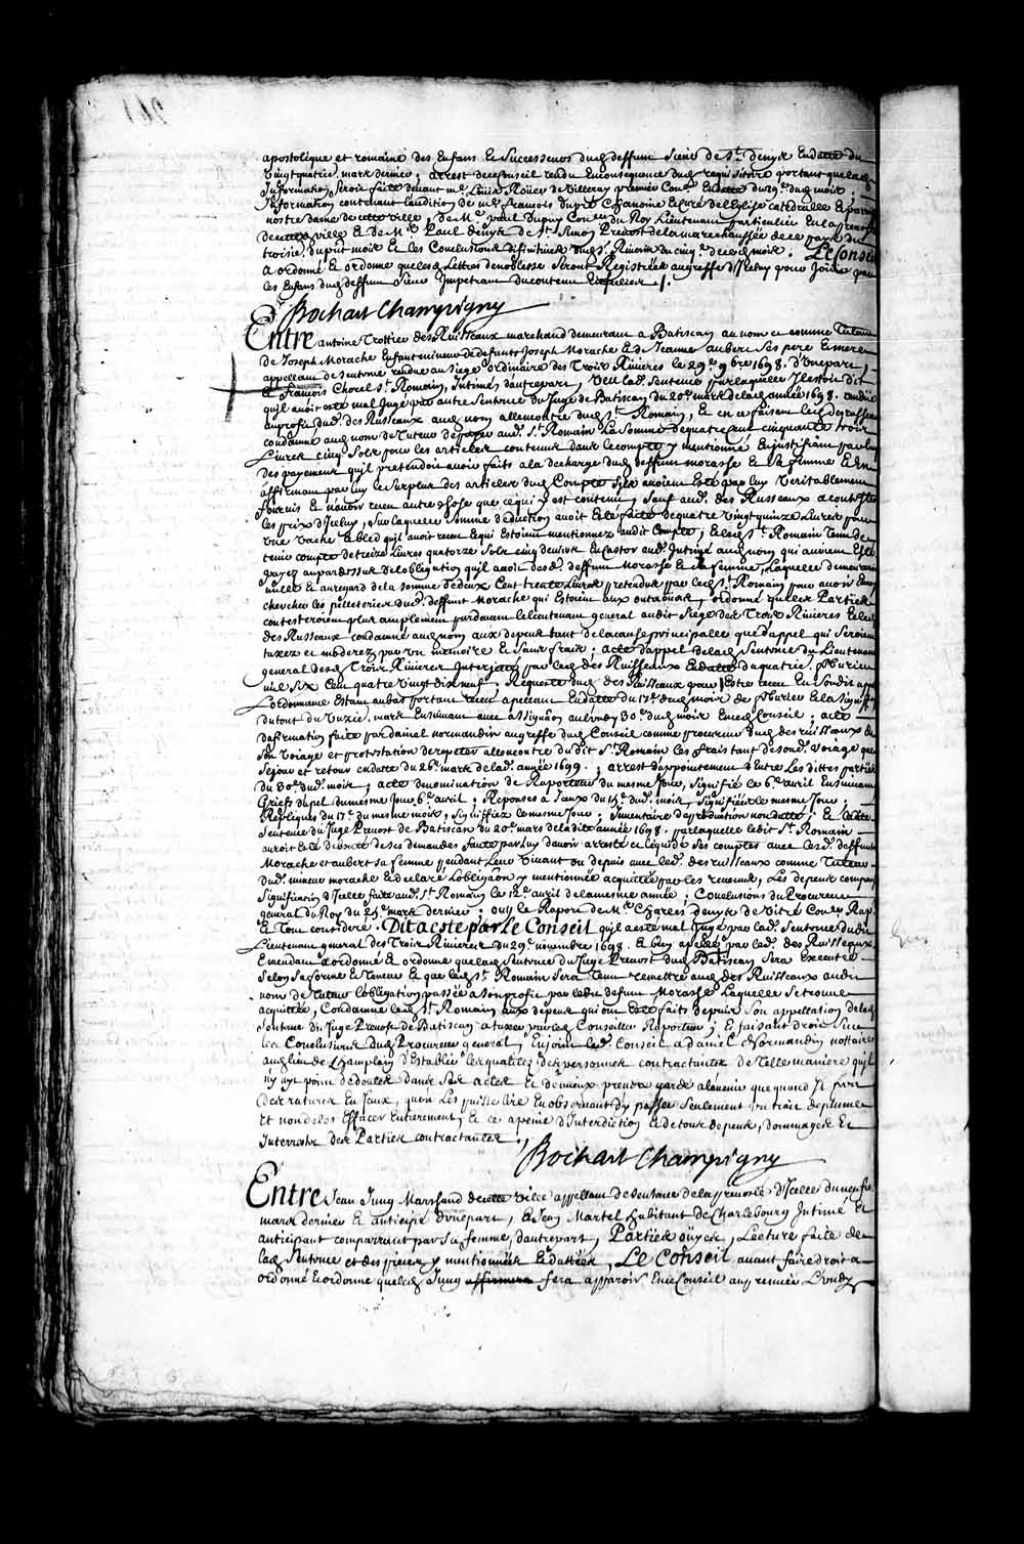 apostolique et romaine des Enfans Et Successeurs dud deffunt Sieur de St. Denys Endatte du
Vingtquatrie. mars dernier; arrest de ceConseil rendu Enconsequence dud requisitoire portant quelad
Information seroit faite devant me. Louis Roüer de Villeray premier Conser. Endatte du dud mois;
Information contenant laudition de me. francois Dupré Chanoine Et Curé de lEglise Catedralle Et
nostre dame de cette ville, de Me. paul Dupuy Coner. du Roy Lieutenant particulier En la prevosté
de cette ville Et de Me. Paul denys de St. Simon Prevost de la mareschaussée de ce pays du
troisie. du p̃nt mois Et Les Conclusions difinitives dud Sr. du cinqe. de ced mois. Le Conseil
a ordonné Et ordonne que lesd Lettres de noblesse seront Registrées au greffe
les Enfans dud deffunt Sieur Impetrant du contenu En icelles /.
Bochart Champigny
Entre antoine Trottier des Ruisseaux marchand demeurant a Batiscan au nom et comme Tuteur
de Joseph Morache Enfant mineur de deffunts Joseph Morache Et de Jeanne aubert ses pere Et mere
appellant de sentence rendue au siege ordinaire des Trois Rivieres le 29e. 9bre 1698. d'Une part,
Et francois Chorel St. Romain, Intimé dautre part, Veu lad. Sentence par laquelle Il estoit dit
quil avoit esté mal Jugé par autre Sentence du Juge de Batiscan du 20e. mars de lad année 1698. rendüe
au profit dud. des Ruisseaux aud nom allencontre dud St. Romain, Et en ce faisant led des ruisseaux
condamné aud nom de Tuteur de payer aud. St. Romain La Somme de quatre cent cinquante trois
Livres cinq Sols pour les articles contenus dans le compte y mentionné En justifiant par luy
des payemens quil pretendoit avoir faits a la decharge dud deffunt morasse Et sa femme Et En
affirmant par luy le surplus des articles dud Compte avoient Esté par luy veritablement
fournis Et navoir receu autre chose que ce qui y est contenu, Sauf aud. des Ruisseaux a contester
les prix d'Iceluy, sur laquelle somme deduction avoit Esté faite de quatre vingt quinze Livres pour
Une vache Et bled quil avoit receu Et qui Estoient mentionnez audit Compte, Et led St. Romain Tenu de
tenir compte de treize Livres quatorze Sols cinq deniers En Castor aud. Intimé aud nom qui avoient Esté
payez au par dessus de lobligation quil avoit desd. deffunt Morasse Et sa femme, Laquelle demeureroit
nulle Et au regard de la somme de deux Cent trente Livres pretendus par led St. Romain pour avoir Esté
chercher les pelleteries dud. deffunt Morache qui Estoient aux outaouais, ordonné que les Parties
contesteroient plus amplement pardevant le lieutenant general audit Siege des Trois Rivieres Et led
des Ruisseaux condamné aud nom aux depens tant de la cause principalle que d'appel qui seroient
taxez et moderez par Un memoire Et sans frais; acte d'appel de lad Sentence du Lieutenant
general desd Trois Rivieres Interjetté par led des Ruisseaux Endatte du quatrie. feburier
mil Six Cent quatre Vingt dix neuf. Requeste dud des Ruisseaux pour Estre receu En Sondit appel
Lordonnance Estant au bas portant receu appellant Endatte du 17e. dud mois de feburier Et la signiffn.
du tout du Unzie. mars Ensuivant avec assignãon au lundy 30e. dud mois En ce Conseil; acte
dafirmation faite par daniel normandin au greffe dud Conseil comme procureur dud des ruisseaux de
Son voiage et protestation de repeter allencontre dudit Sr. Romain les frais tant de sond. Voiage que
Sejour et retour en datte du 26e. mars de lad. année 1699.; arrest d'appointement d'Entre Les dittes parties
du 30e. dud. mois; acte de nomination de Raporteur du mesme Jour, signiffié le 6e. avril Ensuivant
Griefs dapel du mesme Jour 6e. avril; Reponses a Iceux du 15e. dud. mois, signiffiées le mesme Jour;
Repliques du 17e. du mesme mois, signiffiées le mesme Jour; Inventaire de production non datté; Et autre
Sentence du Juge Prevost de Batiscan du 20e. mars de la dite année 1698. par laquelle ledit St. Romain
auroit Esté debouté de ses demandes faute par luy davoir arresté et liquidé ses comptes avec lesd. deffunts
Morache et aubert sa femme pendant Leur Vivant ou depuis avec led. des ruisseaux comme Tuteur
dud. mineur morache Et declaré Lobligãon y mentionnée acquittée par les receus, Les depens compensez
Significãon d'Icelle faite aud. St. Romain le 12e. avril de la mesme année; Conclusions du Procureur
general du Roy du 25e. mars dernier; ouy le Rapor de Me. Charles denys de Vitré Coner. Rap.
Et Tout consideré. Dit a esté par Le Conseil quil a esté mal Jugé par lad. Sentence dudit
Lieutenant general des Trois Rivieres du 29e. novembre 1698. Et bien apellé par led. des Ruisseaux
Emendant a ordonné Et ordonne que lad Sentence du Juge Prevost dud Batiscan sera Executée
Selon Sa forme Et Teneur Et que led St. Romain sera Tenu remettre aud des Ruisseaux audit
nom de Tuteur lobligation passée a son profit par ledit defunt Morasse Laquelle se trouve
acquittée, Condamne led St. Romain aux depens qui ont Esté faits depuis Son appellation de lad
Sentence du Juge Prevost de Batiscan a taxer par led Conseiller Raporteur; Et faisant droit sur
les Conclusions dud Procureur general, Enjoint led. Conseil a daniel Normandin nottaire
aud lieu de Champlain d'Establir les qualitez des personnes contractantes de Telle maniere quil
n'y ayt point de doutes dans ses actes Et de mieux prendre garde a lavenir que quand Il fera
des ratures En Iceux, quon Les puisse lire En observant dy passer seulement un trait de plume
Et non de les Effacer Entierement, Et ce a peine d'Interdiction Et de tous depens, dommages Et
Interrests des Parties contractantes.
Bochart Champigny
Entre Jean Jung Marchand de cette Ville appellant de sentence de la prevosté d'Icelle du neufie.
mars dernier Et anticipé d'une part, Et Jean Martel habitant de Charlebourg Intimé Et
anticipant comparant par sa femme, dautre part, Parties oüyes, Lecture faite de
lad Sentence et des pieces y mentionnées Et dattées, Le Conseil avant faire droit a
ordonné Et ordonne que led Jung fera apparoir En ce Conseil au premier Lundy